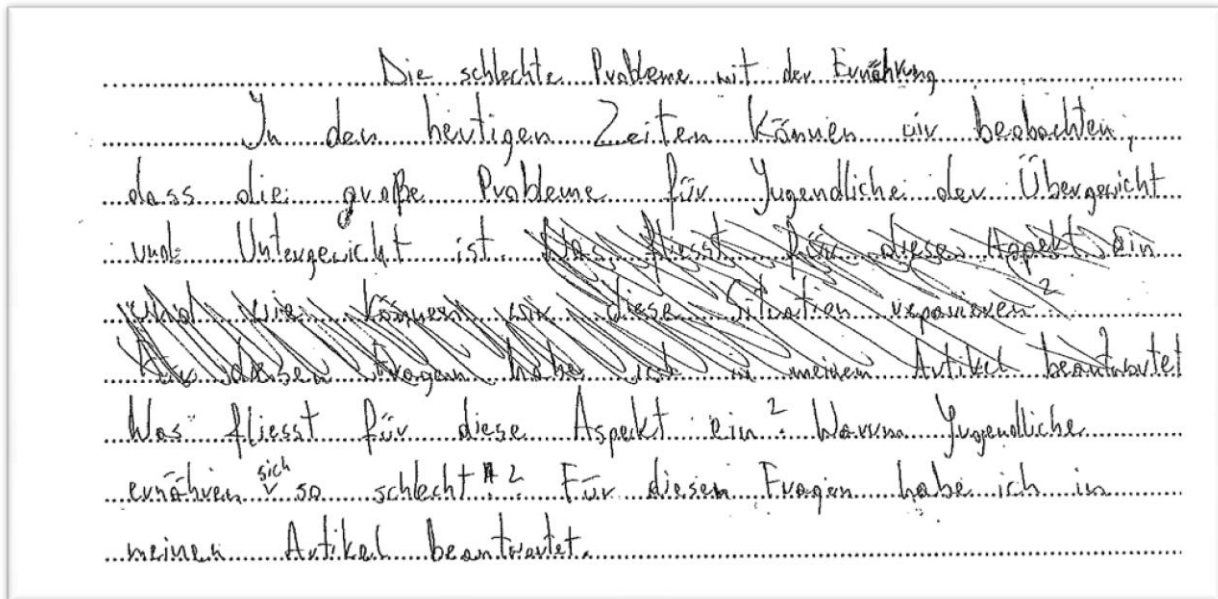 Die schlechte Probleme mit der Ernährung
In den heutigen Zeiten können wir beobachten,
dass die große Probleme für Jugendliche der Übergewicht
und Untergewicht ist. Was fliesst für diese Aspekt ein
und wie können wir diese Situation reparieren?
Für diesen Fragen habe ich in meinem Artikel beantwortet
Was fliesst für diese Aspekt ein? Warum Jugendliche
ernähren sich so schlecht? Für diesen Fragen habe ich in
meinen Artikel beantwortet.